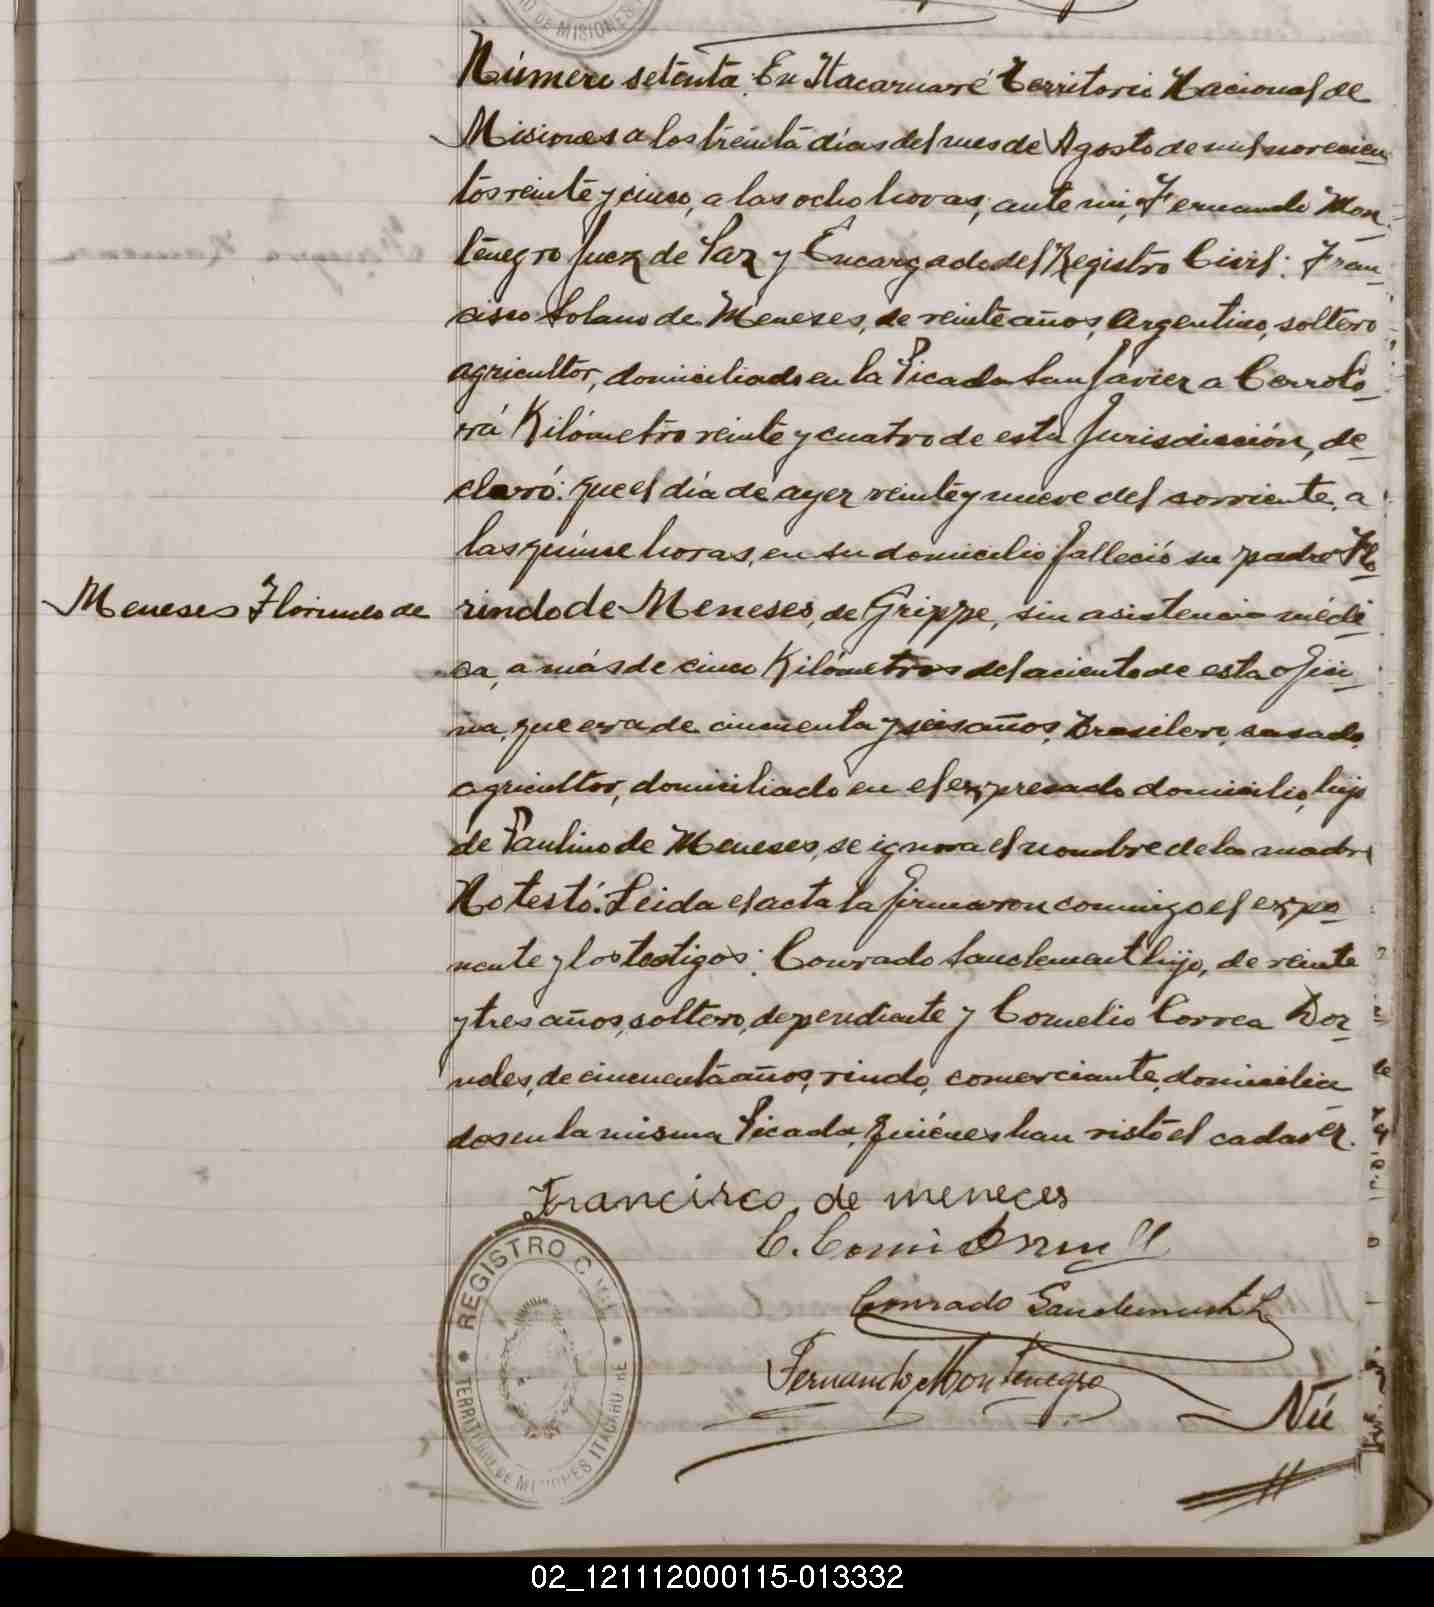 Número setenta. En Itacaruaré Territorio Nacional de
Misiones a los treinta días del mes de Agosto de mil novecien
tos veinte y cinco, a las ocho horas, ante mi, Fernando Mon
tenegro Juez de Paz y Encargado del Registro Civil: Fran_
cisco Solano de Meneses, de veinte años, Argentino, soltero
agricultor, domiciliado en la Picada San Javier a Cerro Co_
rá Kilómetro veinte y cuatro de esta Jurisdicción, de_
claró: que el día de ayer veinte y nueve del corriente, a
las quince horas, en su domicilio falleció su padre Flo_
Meneses Florindo de
rindo de Meneses, de Grippe, sin asistencia médi_
ca, a más de cinco Kilómetros del aciento de esta ofici_
na, que era de cincuenta y seis años, Brasilero, casado,
agricultor, domiciliado en el expresado domicilio, hijo
de Paulino de Meneses, se ignora el nombre de la madre
No testó. Leida el acta la firmaron conmigo el expo_
nente y los testigos: Conrado Sanclement hijo, de veinte
y tres años, soltero, dependiente y Cornelio Correa Dor_
neles, de cincuenta años, viudo, comerciante, domicilia
dos en la misma Picada, quiénes han visto el cadavér.
Francisco de meneces
Conrado Sanclement h
Fernando Montenegro
Nú
REGISTRO CIVIL
TERRITORIO DE MISIONES ITACARUARE
DE MISIONES
02_121112000115-013332